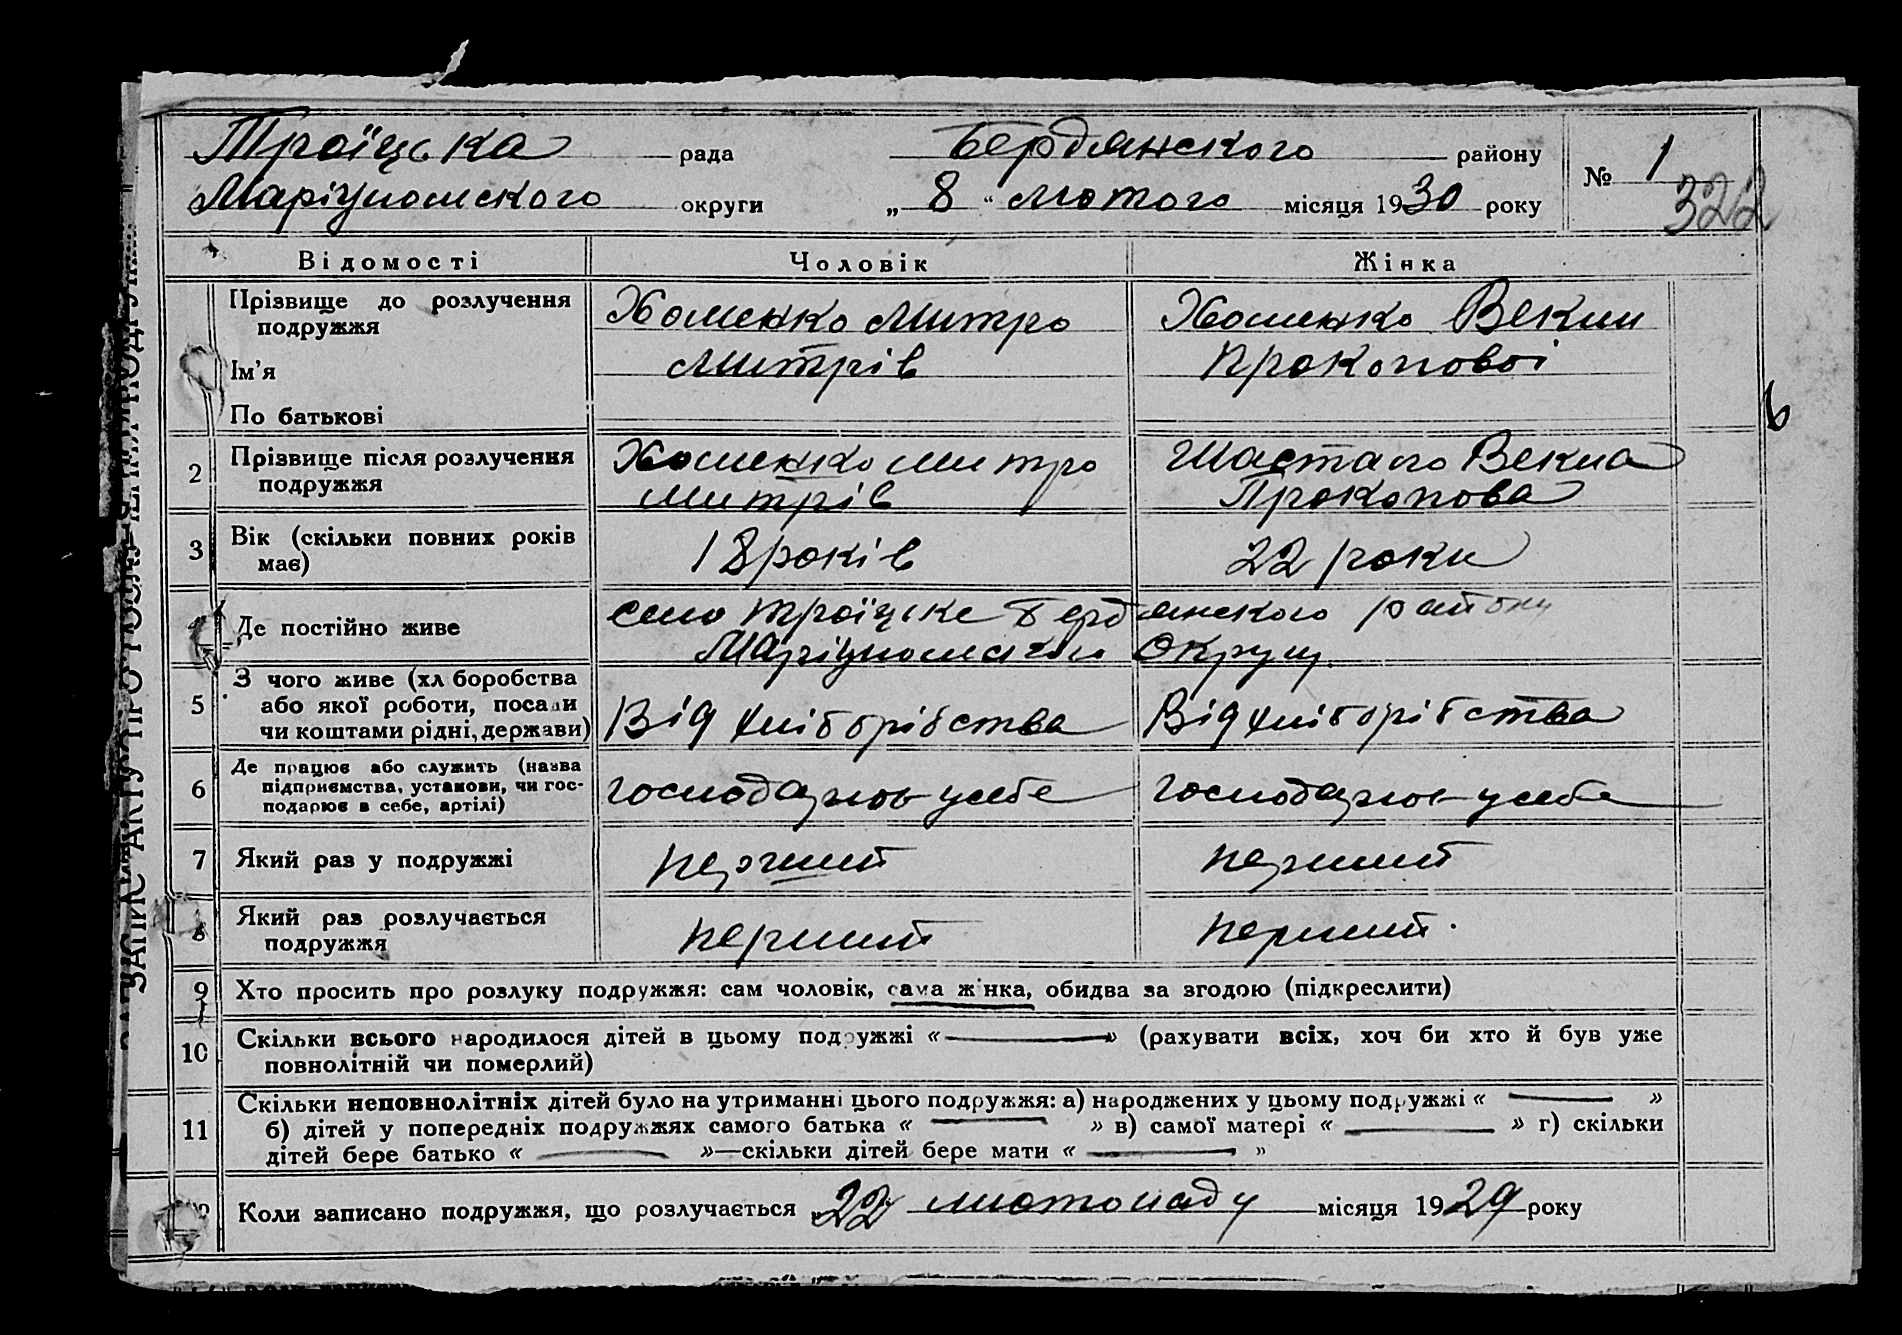 Троїцька рада Бердянского району № 1
322
Маріупольского округи „ 8 “ лютого місяця 1930 року
Відомості Чоловік Жінка
Прізвище до розлучення Хоменко Митро Хоменко Векли
подружжя
Ім’я Митрів Прокопової
По батькові
2 Прізвище після розлучення Хоменко Митро Шастало Векла
подружжя Митрів Прокопова
3 Вік (скільки повних років 18 років 22 роки
має)
Де постійно живе село Троїцьке Бердянского району
Маріупольскої Округи
5 З чого живе (хл боробства
або якої роботи, посади Від хліборібства Від хліборібства
чи коштами рідні, держави)
6 Де працює або служить (назва
підприємства, установи, чи гос- господарює у себе господарює у себе
подарює в себе, артілі)
7 Який раз у подружжі перший перший
8 Який раз розлучається перший перший.
подружжя
9 Хто просить про розлуку подружжя: сам чоловік, сама жінка, обидва за згодою (підкреслити)
10 Скільки всього народилося дітей в цьому подружжі «—» (рахувати всіх, хоч би хто й був уже
повнолітній чи померлий)
11 Скільки неповнолітніх дітей було на утриманні цього подружжя: а) народжених у цьому подружжі « — »
б) дітей у попередніх подружжях самого батька « — » в) самої матері « — » г) скільки
дітей бере батько « — »—скільки дітей бере мати « — »
Коли записано подружжя, що розлучається 22 листопаду місяця 1929 року